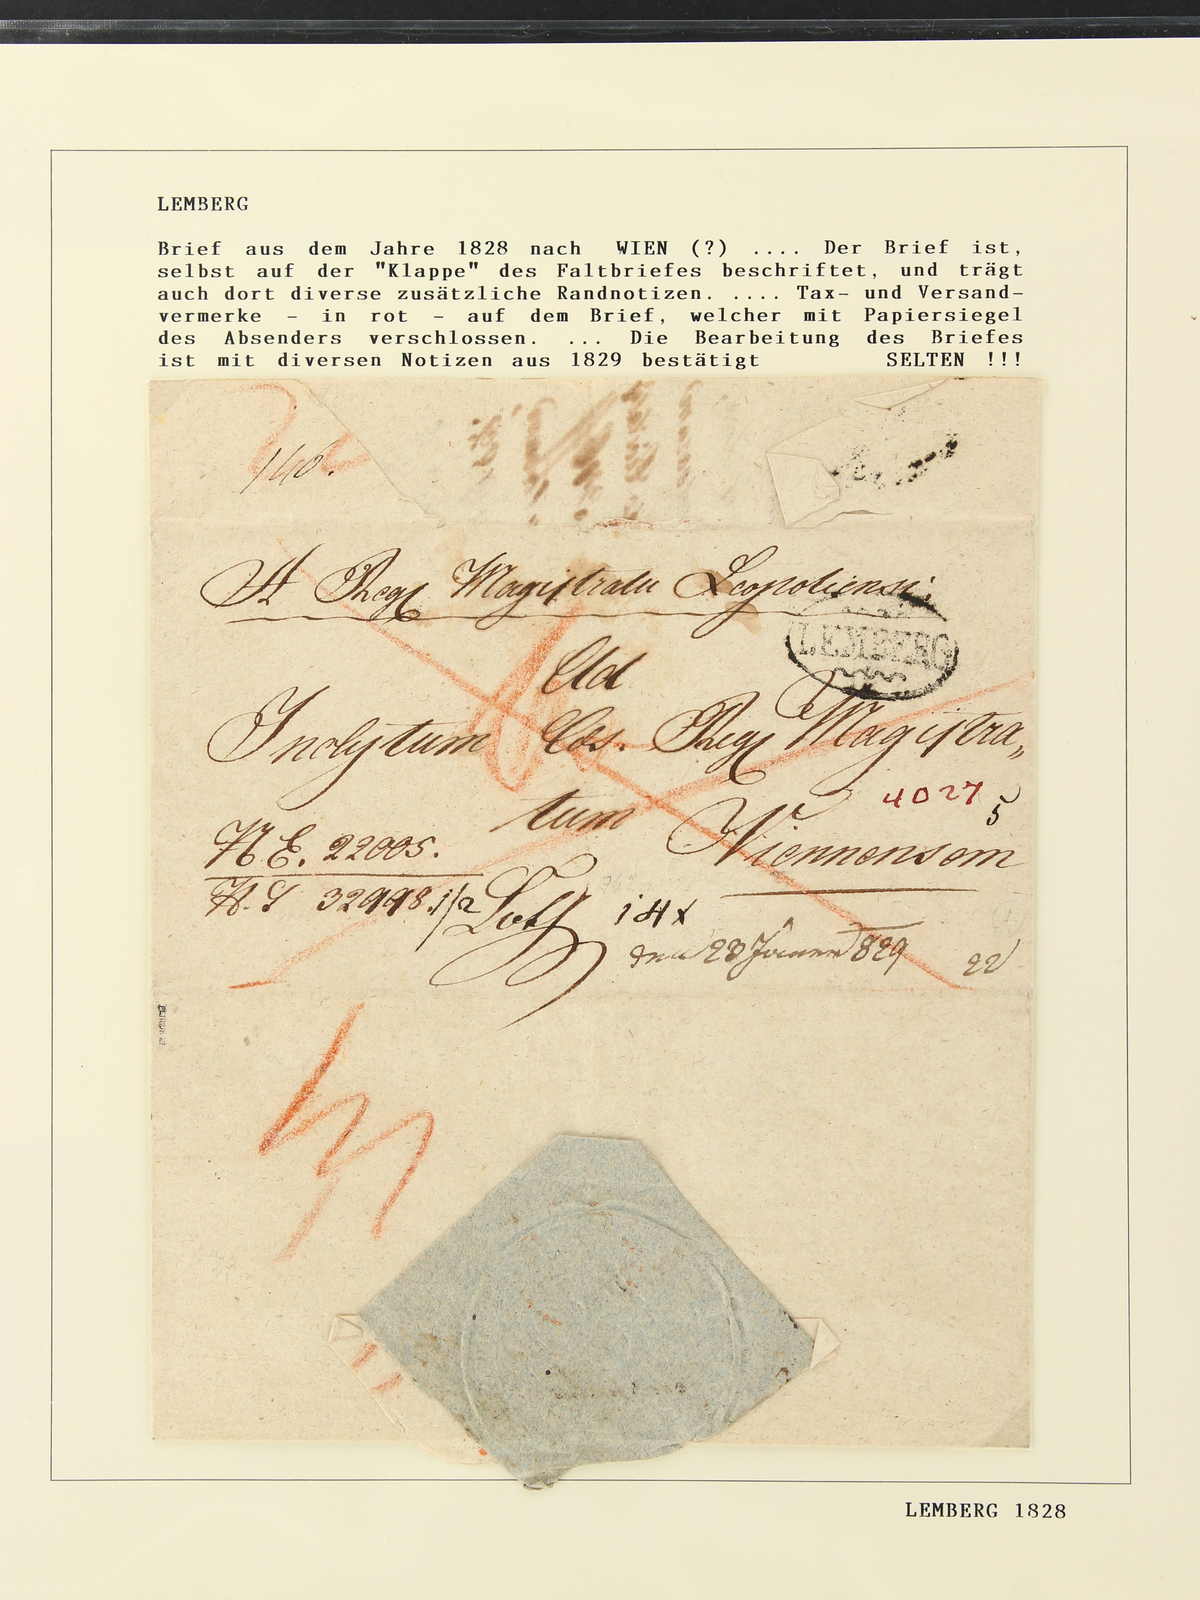 LEMBERG
Brief aus dem Jahre 1828 nach WIEN (?) .... Der Brief ist,
selbst auf der "Klappe" des Faltbriefes beschriftet, und trägt
auch dort diverse zusätzliche Randnotizen. .... Tax- und Versand-
vermerke - in rot - auf dem Brief, welcher mit Papiersiegel
des Absenders verschlossen. ... Die Bearbeitung des Briefes
ist mit diversen Notizen aus 1829 bestätigt SELTEN !!!
140.
A Reg Magistratu Leopoliensi.
LEMBERG
Ad
Inclytum Cæs. Reg Magistra„
4027 5
tum Viennensem
N E. 22005.
32998. 1/2 Loth
den 23 Jänner 829 22
LEMBERG 1828